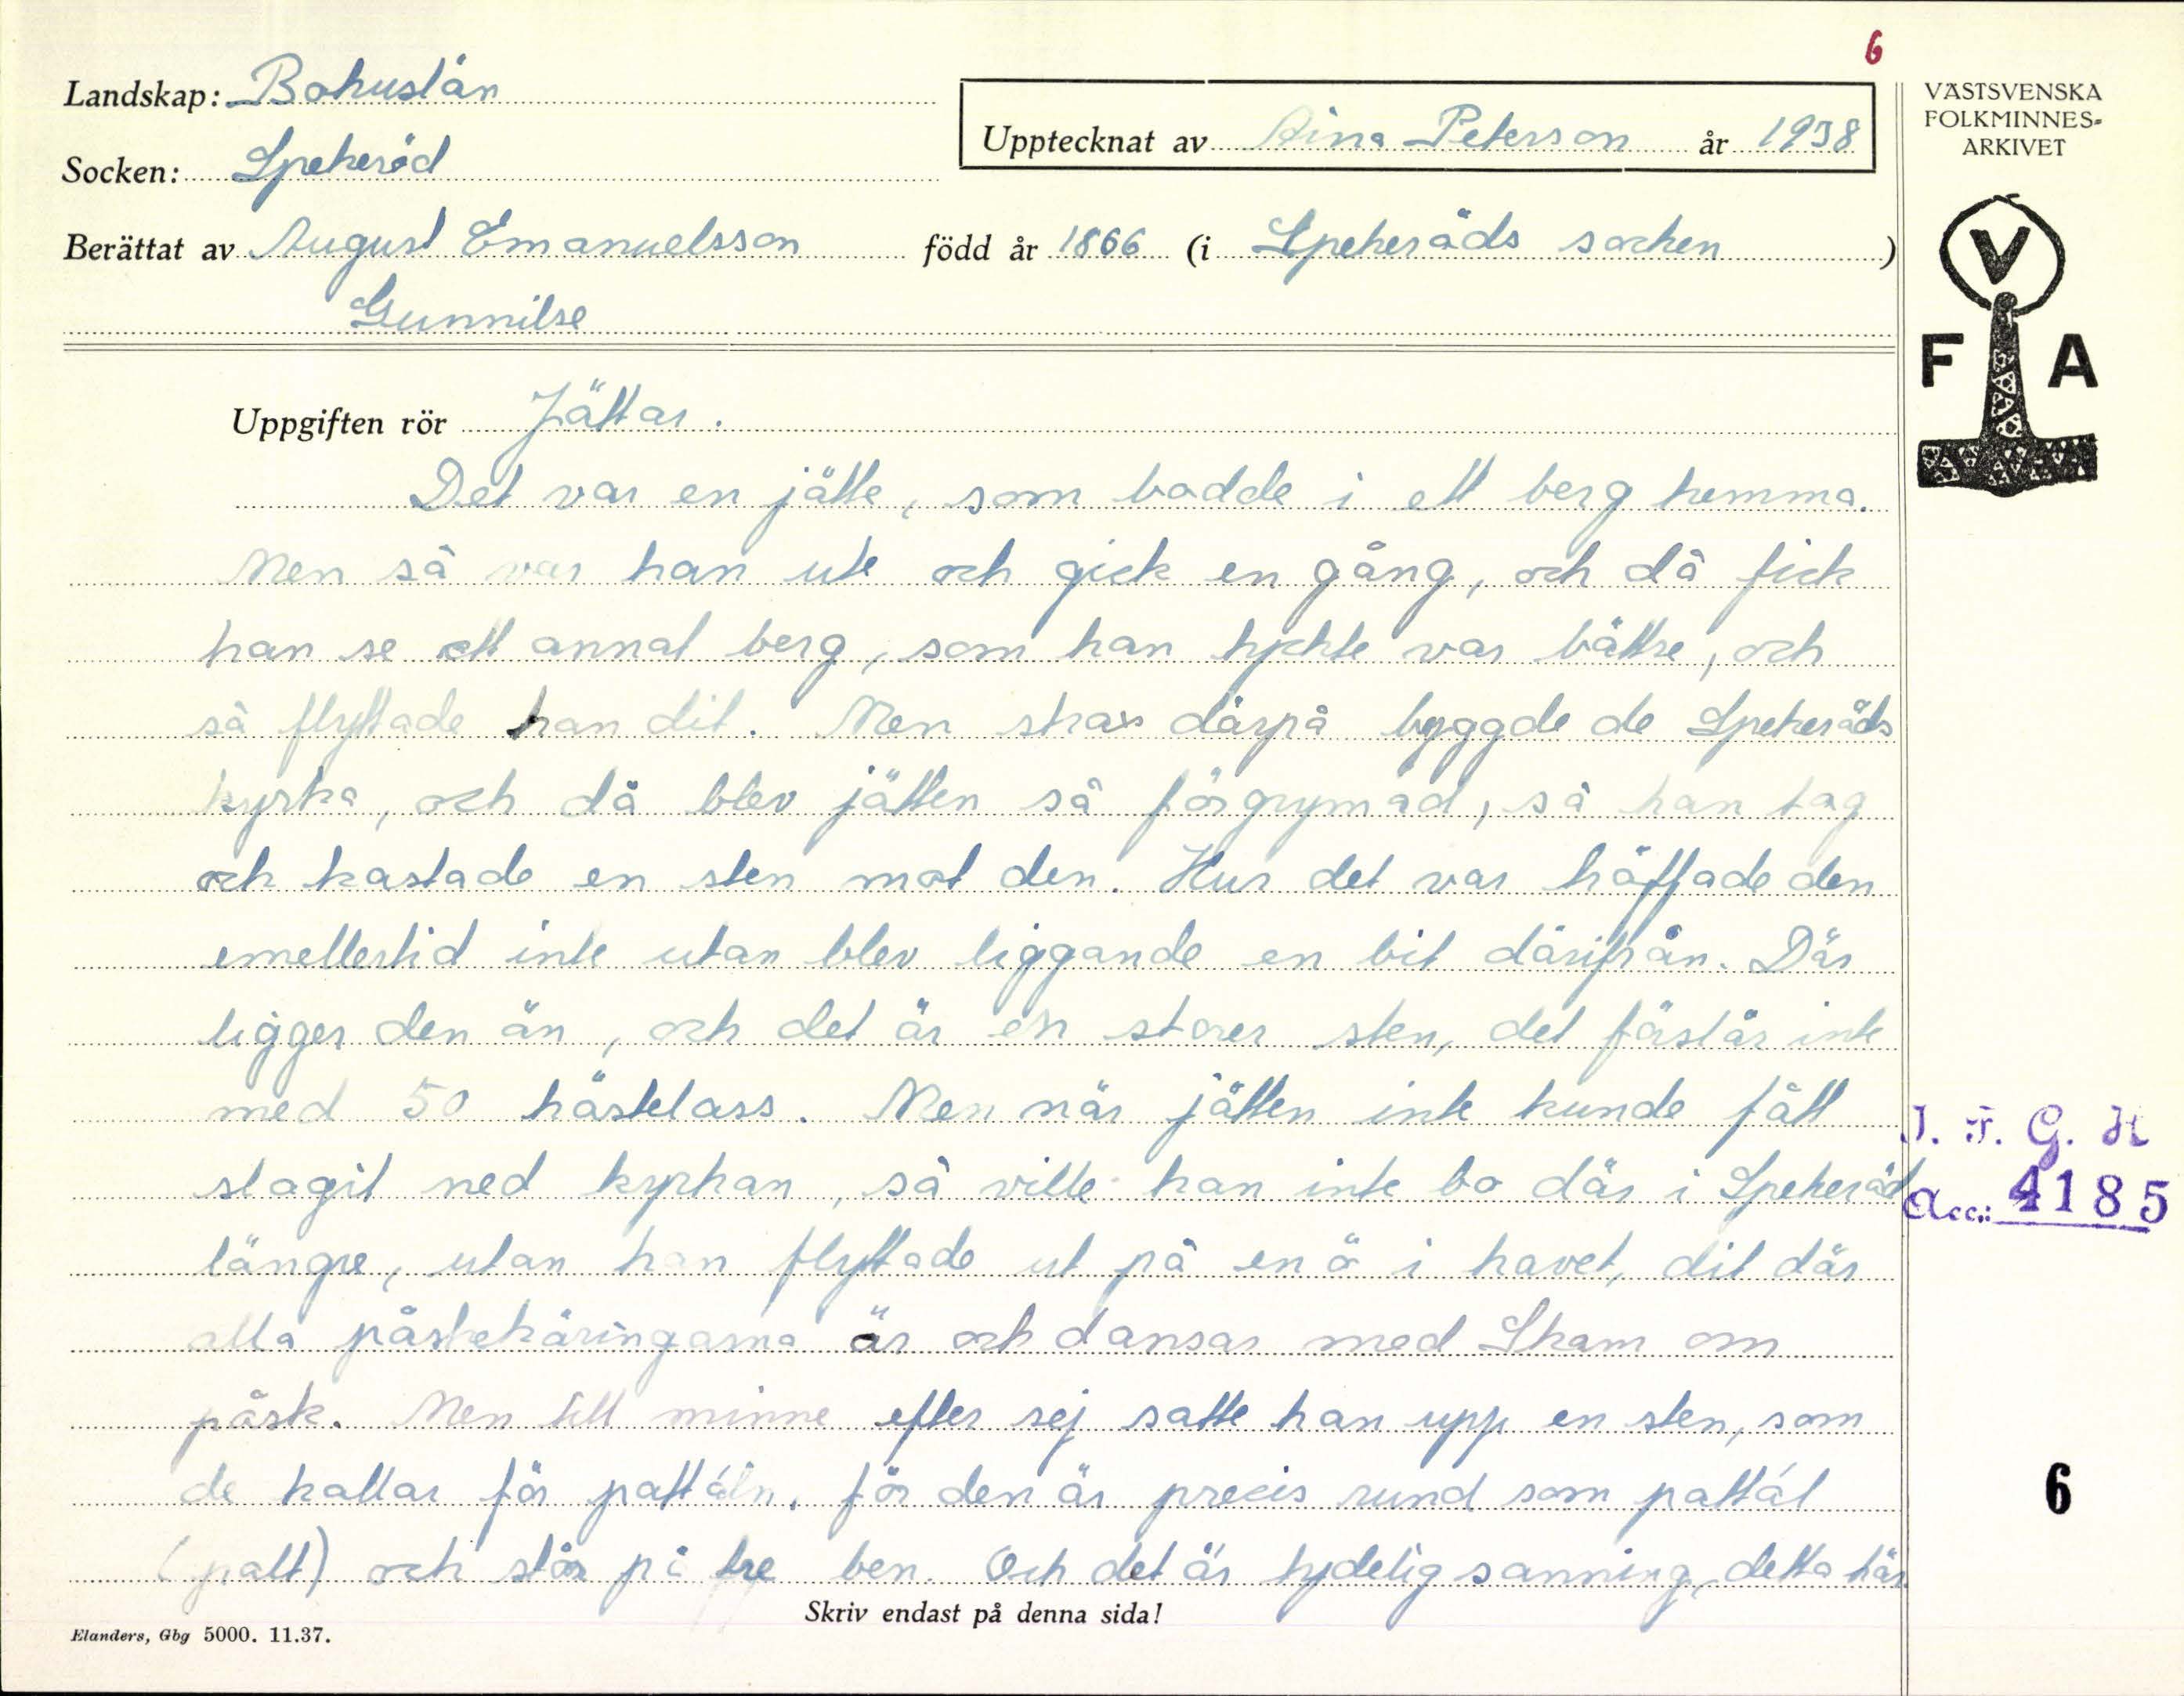 6
Landskap: Bohuslän
Upptecknat av Aina Peterson år 1938
Socken: Spekeröd
Berättat av August Emanuelsson född år 1866 (i Spekeröds socken)
Gunnilse
VÄSTSVENSKA
FOLKMINNES-
ARKIVET
V
F A
Uppgiften rör Jättar.
Det var en jätte, som bodde i ett berg hemma.
Men så var han ute och gick en gång, och då fick
han se ett annat berg, som han tyckte var bättre, och
så flyttade han dit. Men strax därpå byggde de Spekeröds
kyrka, och då blev jätten så förgrymad, så han tog
och kastade en sten mot den. Hur det var träffade den
emellertid inte utan blev liggande en bit därifrån. Där
ligger den än, och det är en storer sten, det förslår inte
med 50 hästelass. Men när jätten inte kunde fått
slagit ned kyrkan, så ville han inte bo där i Spekeröd
längre, utan han flyttade ut på en ö i havet, dit där
alla påskekäringarna är och dansar med Skam om
påsk. Men till minne efter sej satte han upp en sten, som
de kallar för pattáln, för den är precis rund som pattál
(palt) och står på tre ben. Och det är tydelig sanning, detta här.
J. F. G. H
Acc.: 4185
6
Skriv endast på denna sida!
Elanders, Gbg 5000. 11.37.